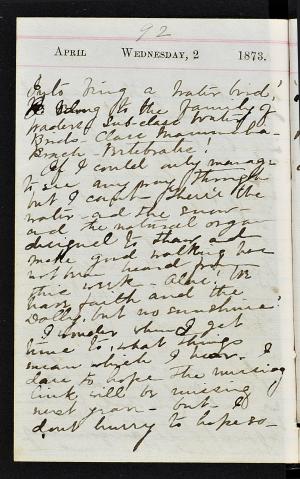 92
APRIL WEDNESDAY, 2 1873.
to being a water bird!
belong to the family of
Waders Subclass Water
Birds - Class Mammalia -
Branch - Vertebrate!
If I could only manage
to see any way through
but I can't - there's the
water - and the snow -
and the natural organ
designed to thaw and
make good walking has
not been heard from
this week - Alas! We
have faith and the
Dally, but no sunshine!
I wonder when I get
home to what things
mean which I hear. I
dare to hope the missing
link will be missing
next year - but - I
don't hurry to hope so -